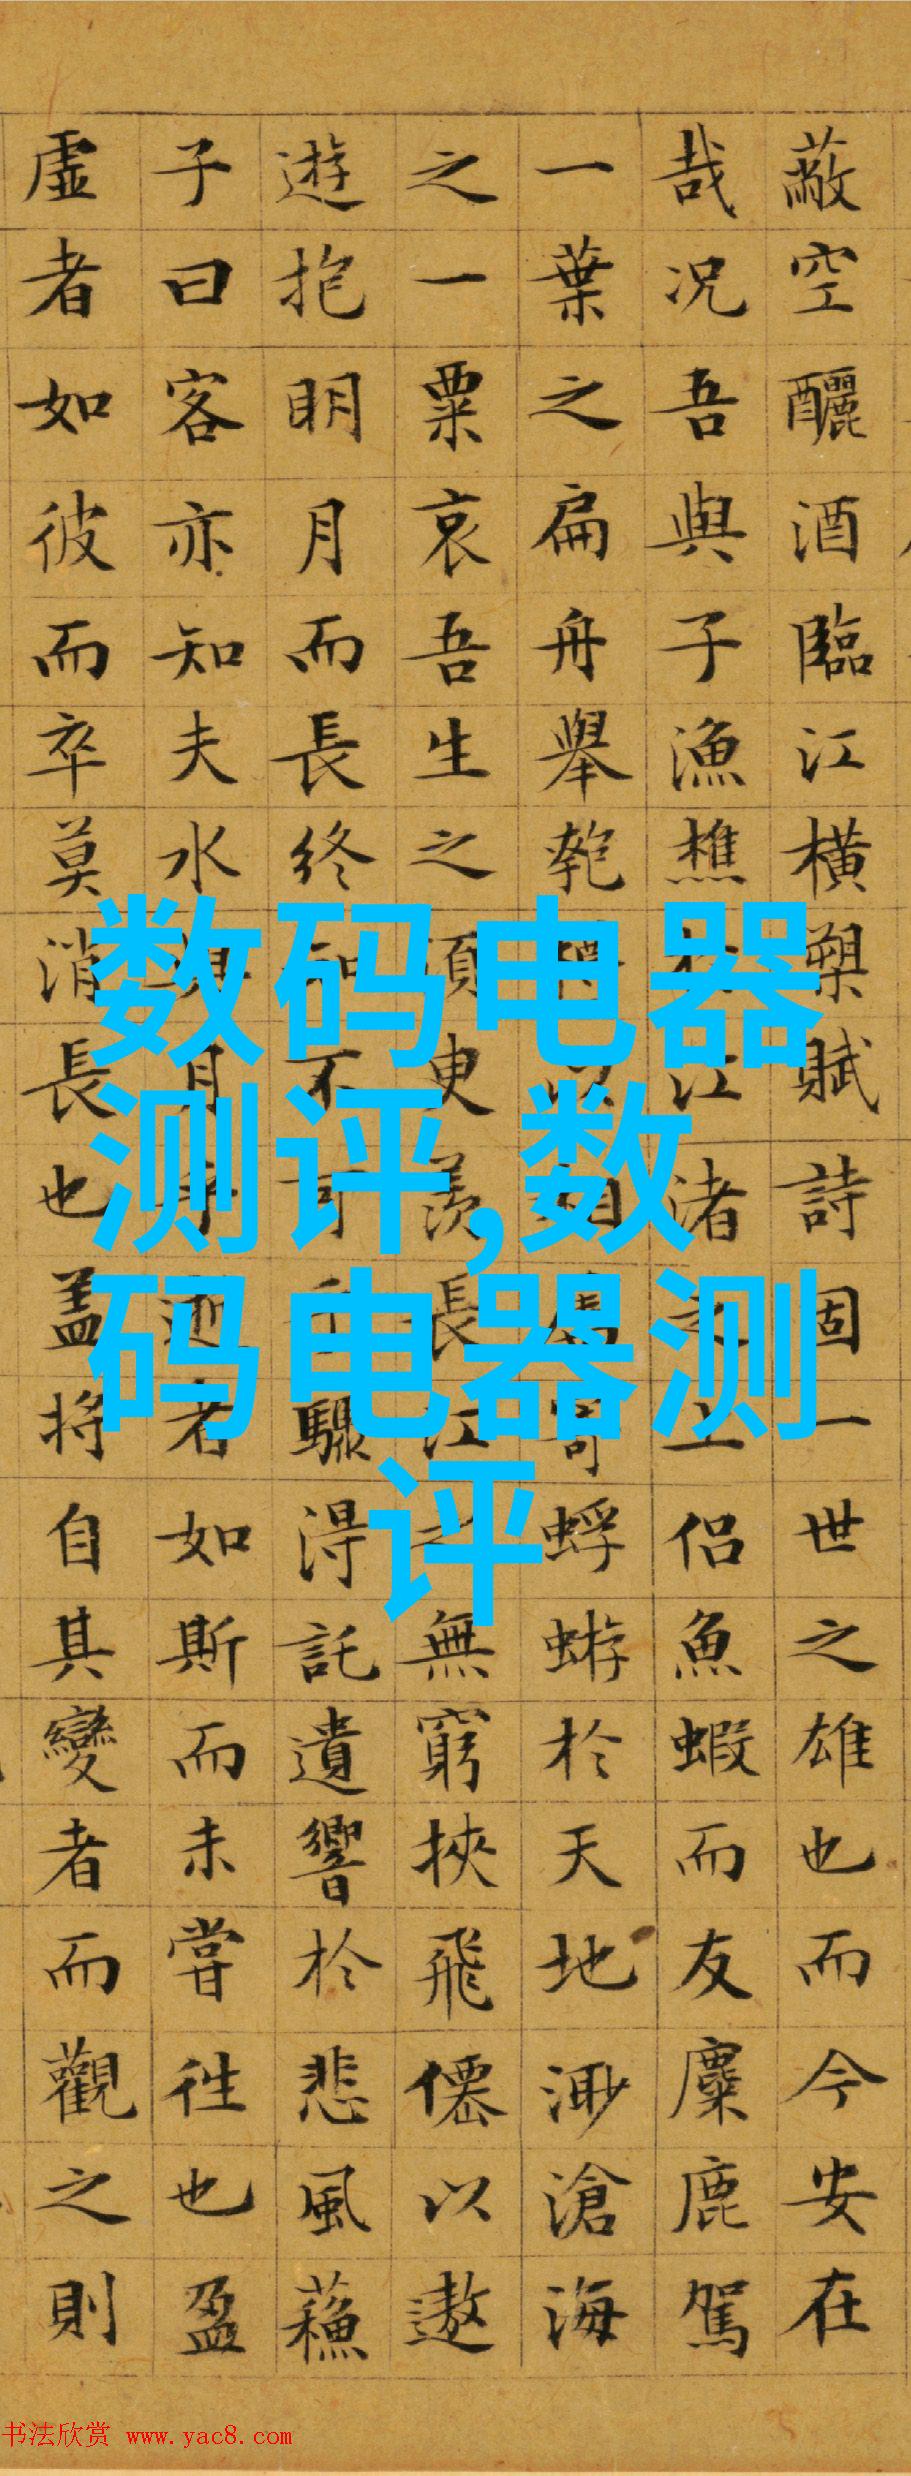 蔽空釃酒臨江橫槊賦詩固一世之雄也而今安在
哉况吾與子漁樵於江渚之上侶魚蝦而友麋鹿駕
一葉之扁舟舉匏樽以相屬寄蜉蝣於天地渺滄海
之一粟哀吾生之須臾羨長江之無窮挾飛僊以遨
遊抱明月而長終知不可乎驟得託遺響於悲風蘇
子曰客亦知夫水與月乎逝者如斯而未嘗往也盈
虛者如彼而卒莫消長也盖將自其變者而觀之則
数码电器
测评,数
码电器测
评
书法欣赏 www.yac8.com